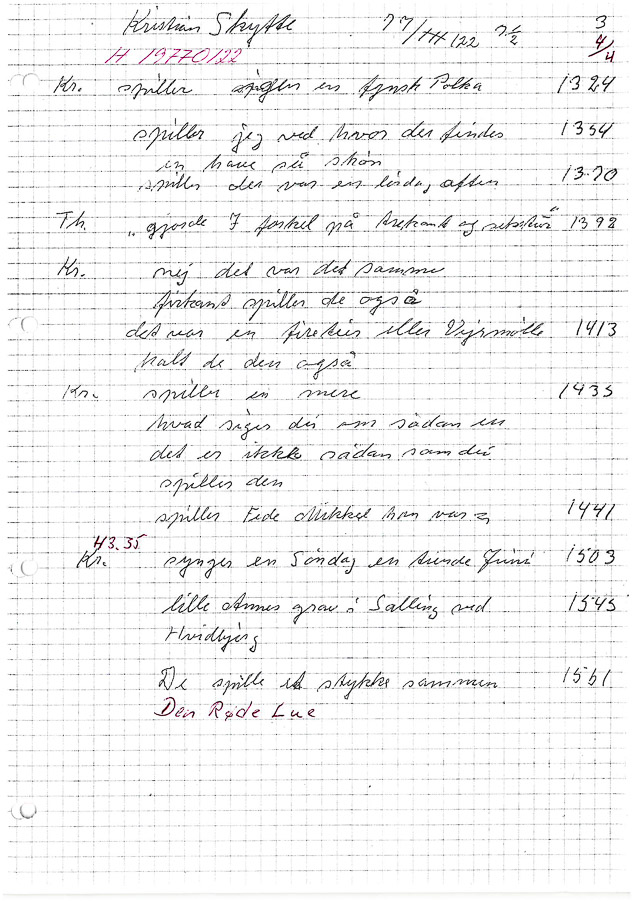 Kristian Skytte 77/HH/22 7½ 3
H 19770122 4/4
Kr. spiller en fynsk Polka 1324
spiller jeg ved hvor der findes 1354
en have så skøn
spiller der var en lørdag aften 1370
Th. "gjorde I forskel på trekant og sekstur" 1392
Kr. nej det var det samme
firkant spiller de også
det var en firetur eller Vejrmølle 1413
kalt de den også
Kr. spiller en mere 1435
hvad siger du om sådan en
det er ikke sådan som du
spiller den
spiller Fede Mikkel han var 1441
H3.35
Kr. synger en Søndag en tiende Juni 1503
lille Annes grav i Salling ved 1545
Hvidbjerg
De spille et stykke sammen 1561
Den Røde Lue